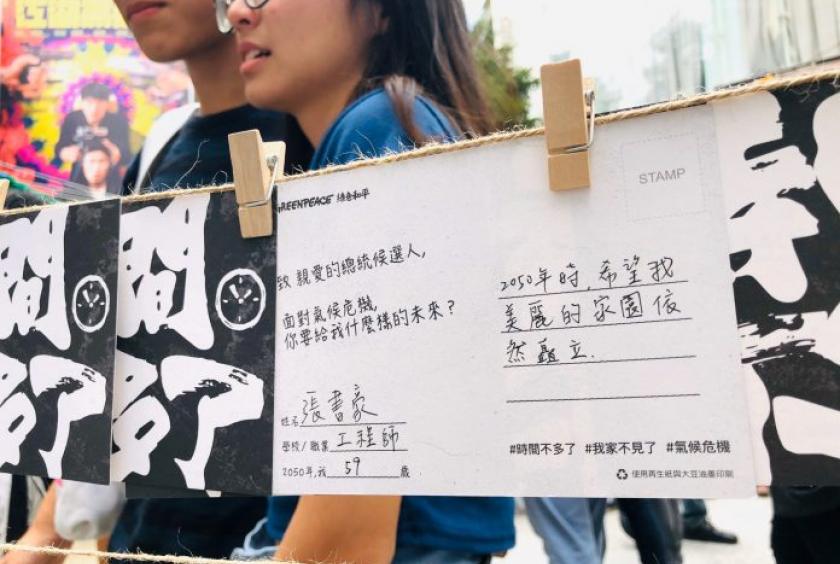 GREENPEACE 綠色和平
STAMP
致 親愛的總統候選人,
面對氣候危機,
你要給我什麼樣的未來？
姓名 張書豪
學校 / 職業 工程師
2050年,我 59 歲
2050年時, 希望我
美麗的家園依
然矗立.
#時間不多了 #我家不見了 #氣候危機
使用再生紙與大豆油墨印刷
間
了
間
了